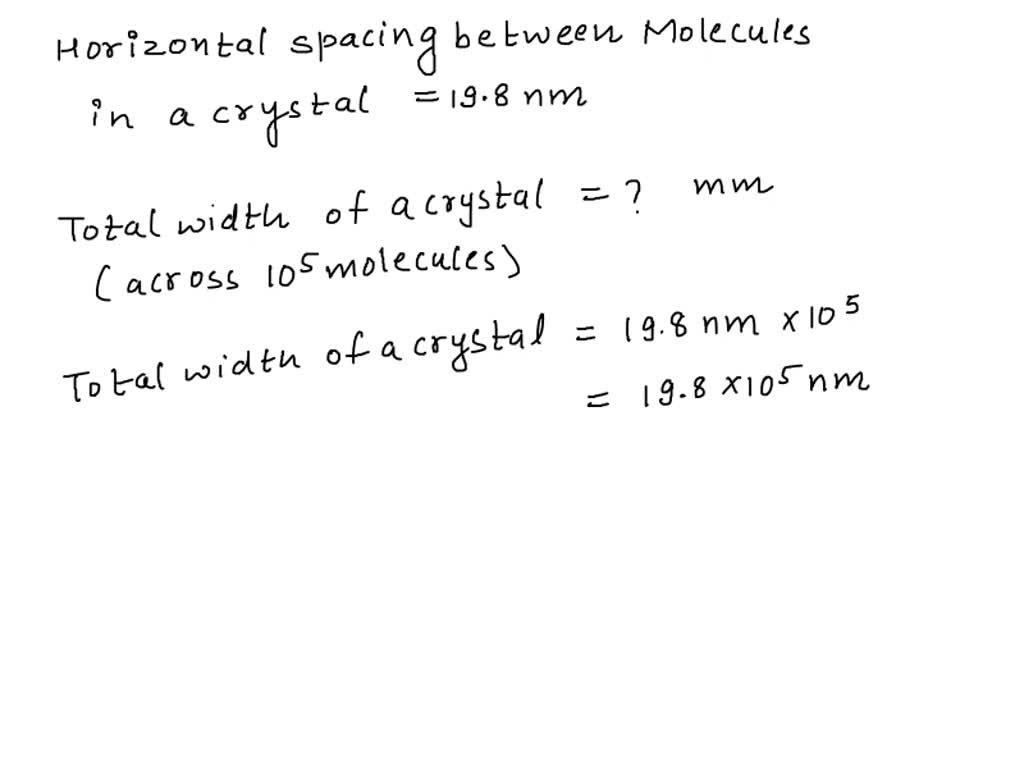 Horizontal spacing between Molecules
in a crystal = 19.8 nm
Total width of a crystal = ? mm
(across 10⁵ molecules)
Total width of a crystal = 19.8 nm × 10⁵
= 19.8 × 10⁵ nm